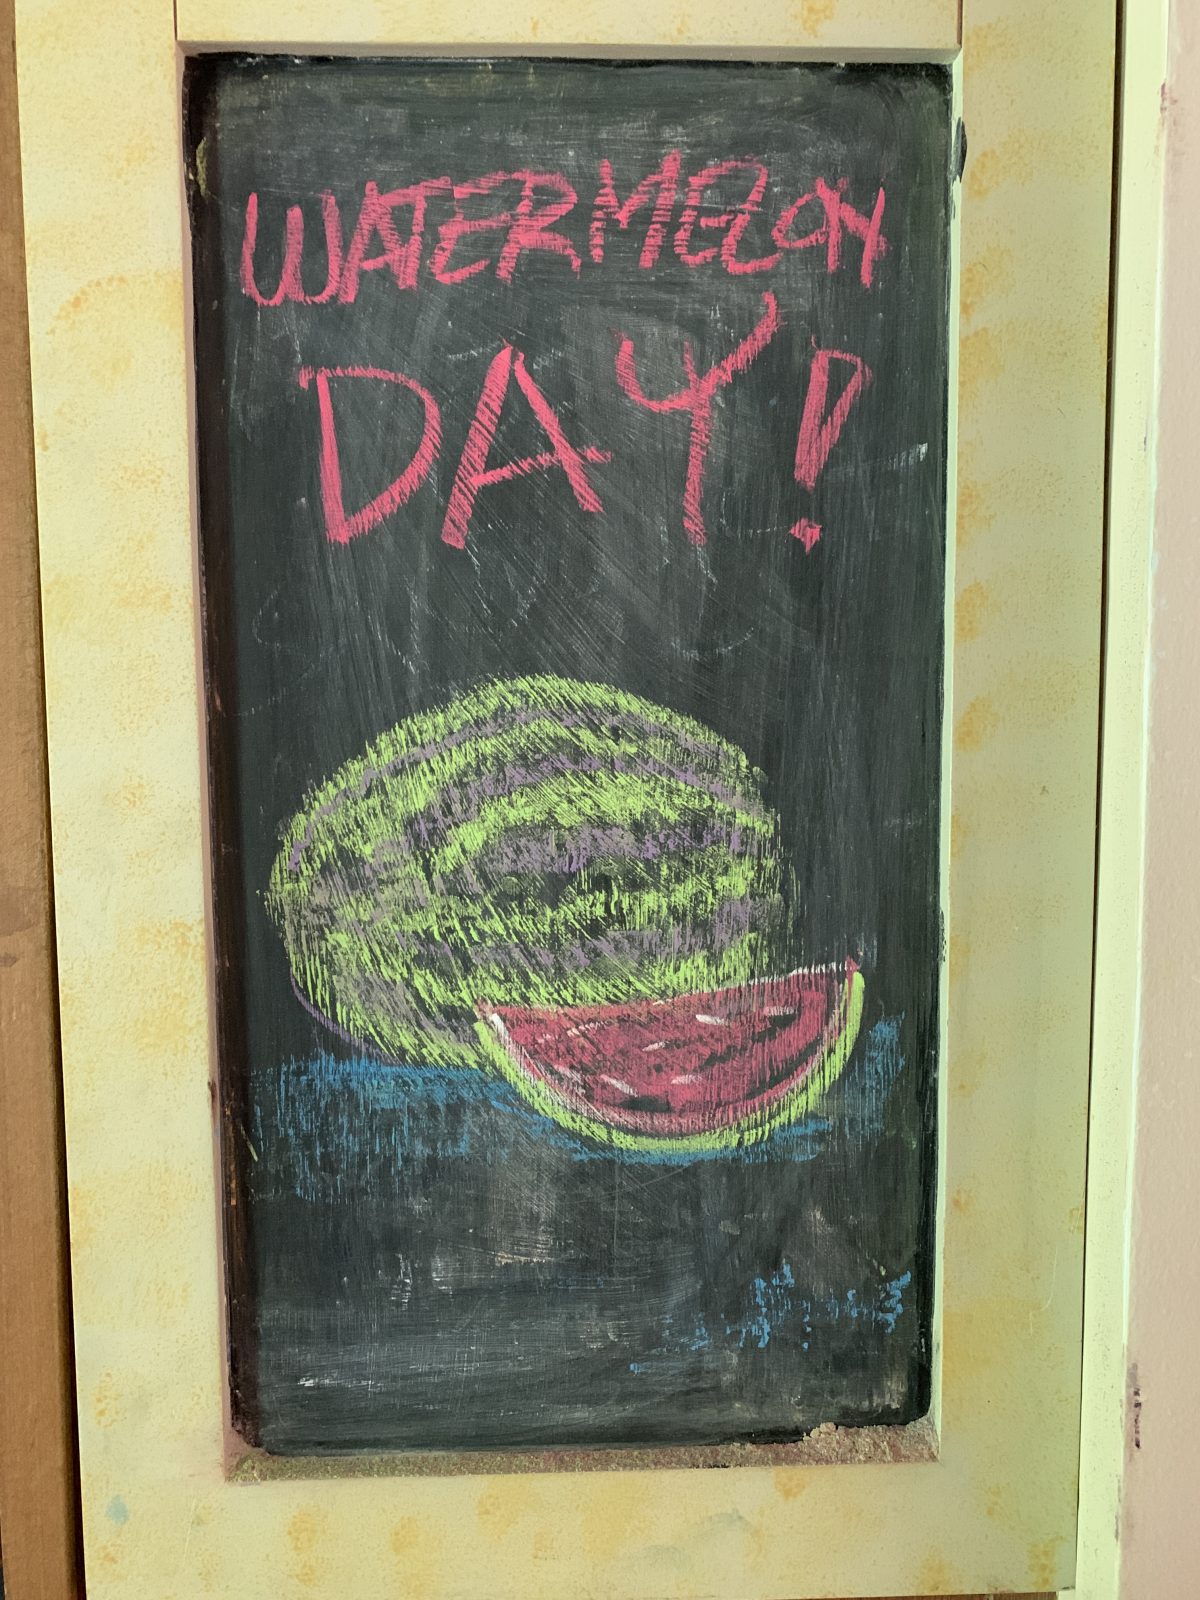 WATERMELON
DAY!